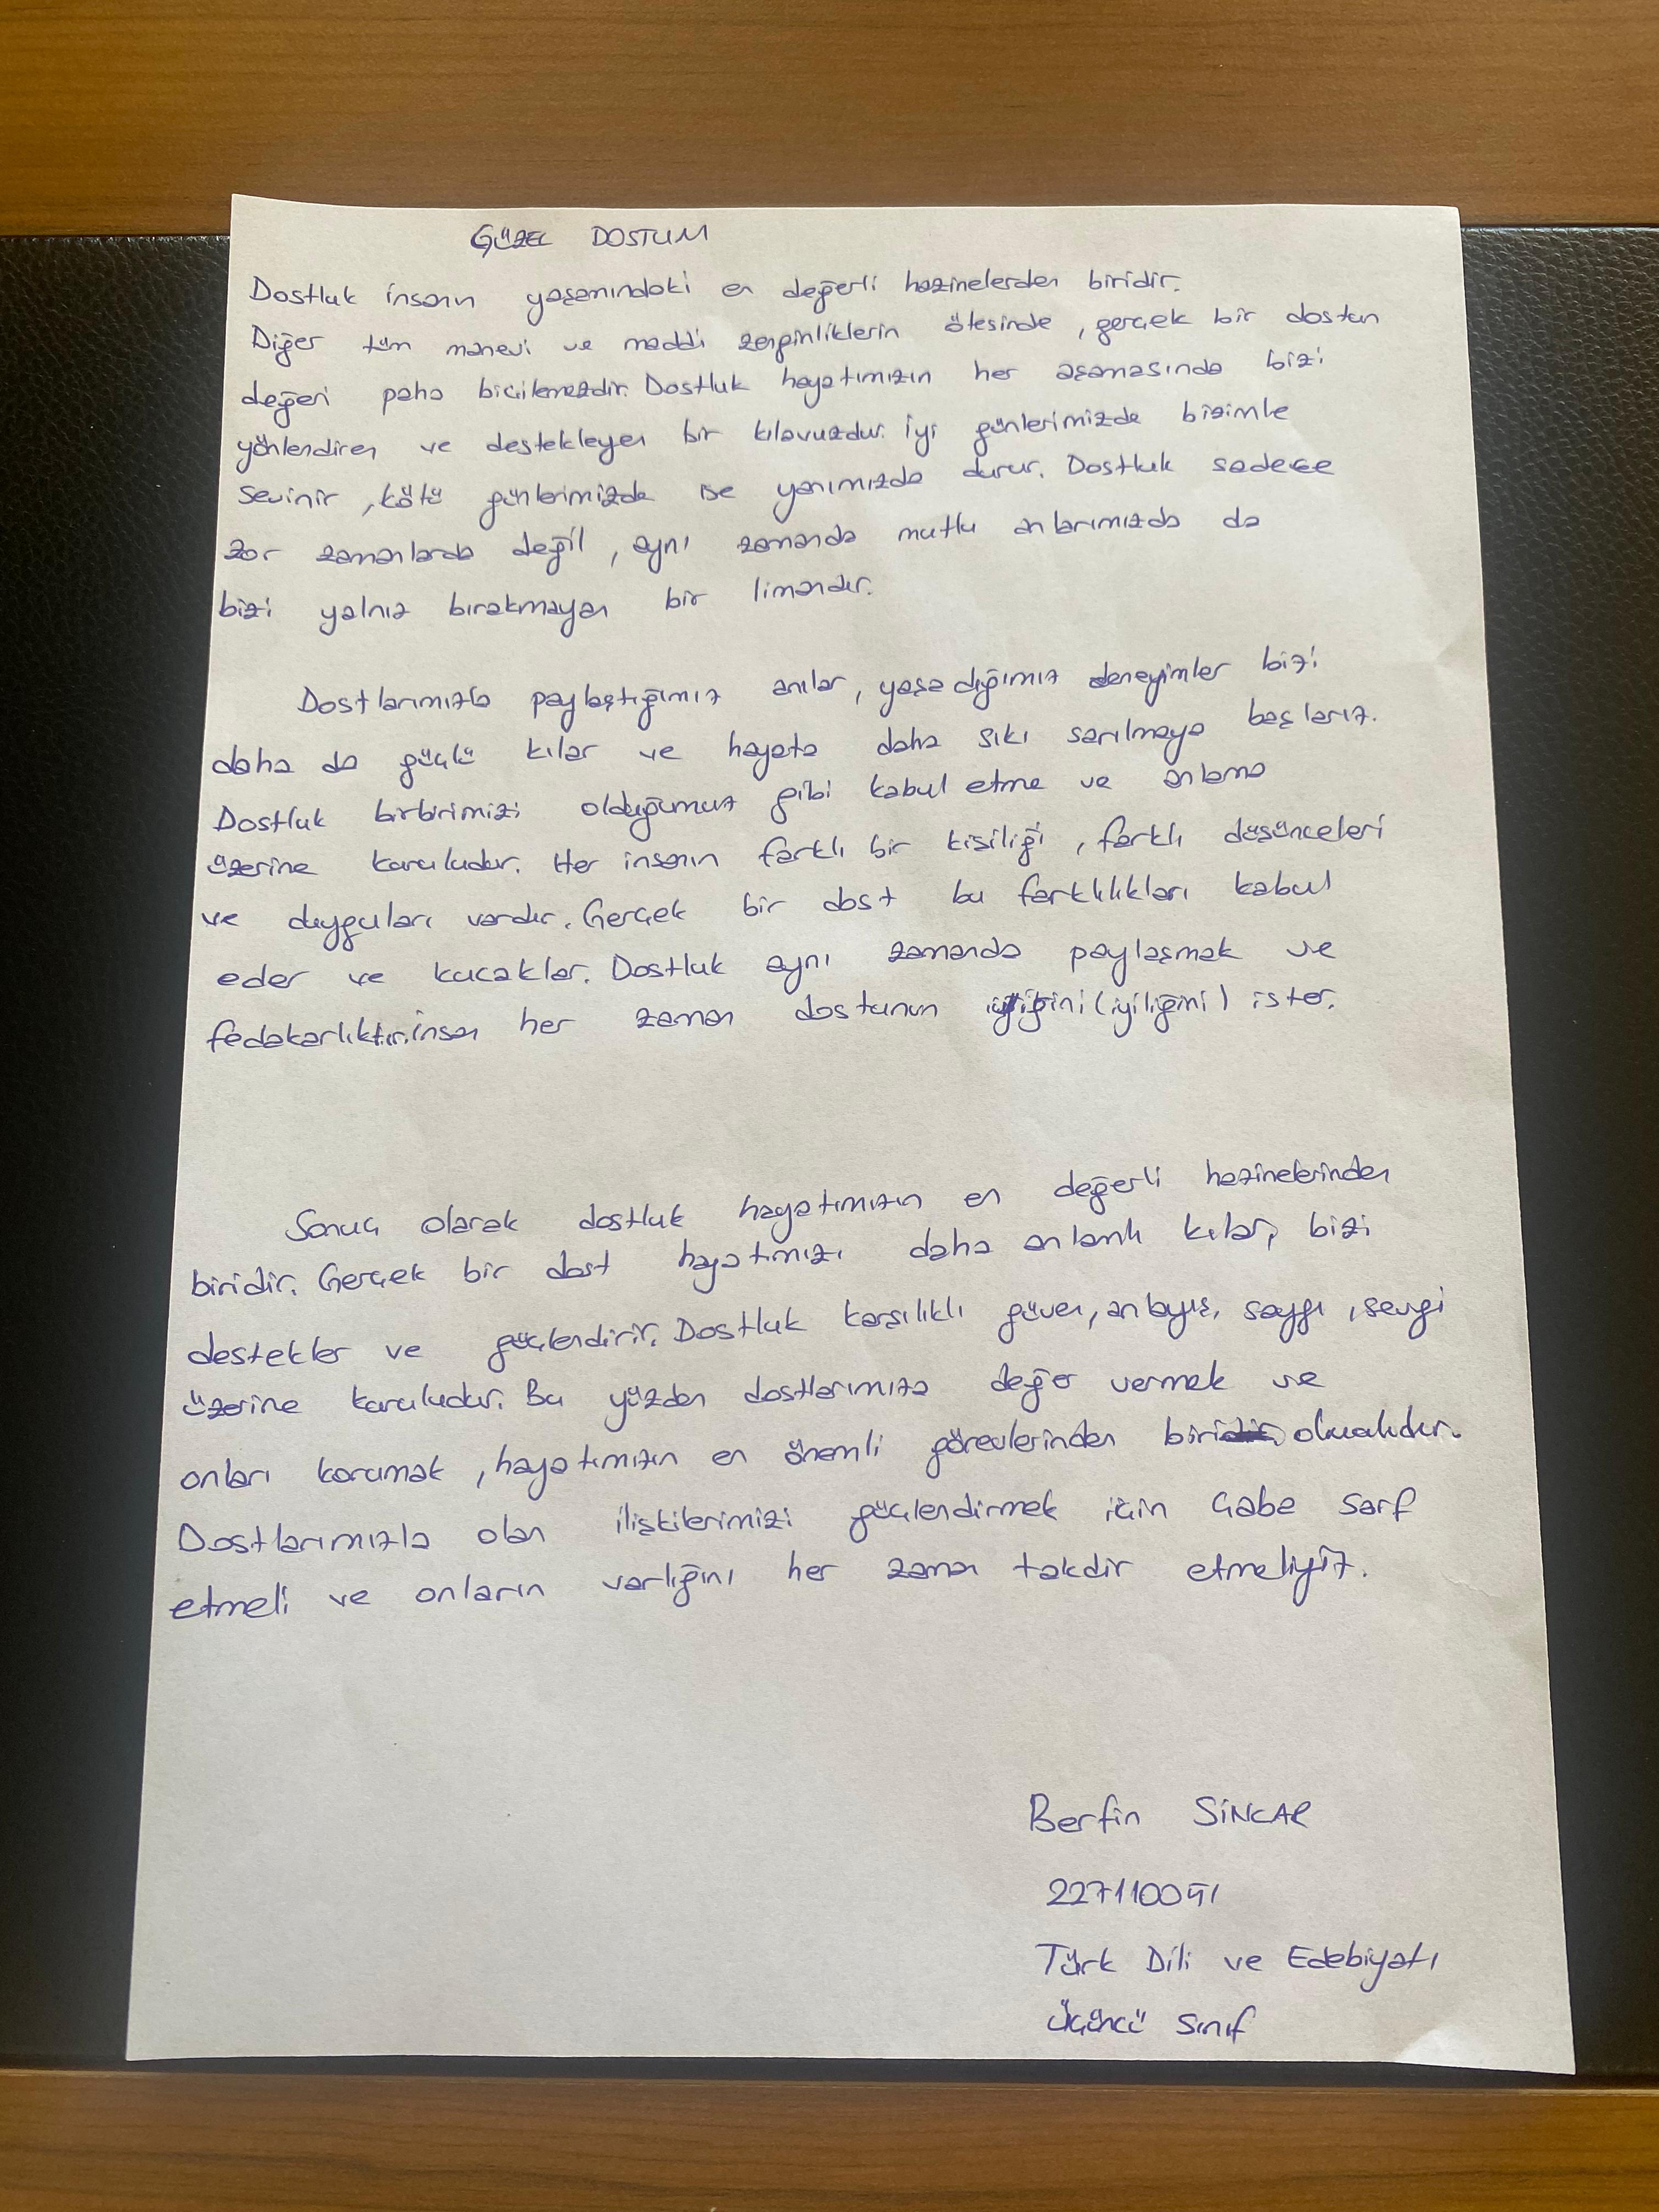 GÜZEL DOSTUM
Dostluk insanın yaşamındaki en değerli hazinelerden biridir.
Diğer tüm manevi ve maddi zenginliklerin ötesinde , gerçek bir dostun
değeri paha biçilemezdir. Dostluk hayatımızın her aşamasında bizi
yönlendiren ve destekleyen bir kılavuzdur. İyi günlerimizde bizimle
sevinir , kötü günlerimizde ise yanımızda durur. Dostluk sadece
zor zamanlarda değil , aynı zamanda mutlu anlarımızda da
bizi yalnız bırakmayan bir limandır.
Dostlarımızla paylaştığımız anılar, yaşadığımız deneyimler bizi
daha da güçlü kılar ve hayata daha sıkı sarılmaya başlarız.
Dostluk birbirimizi olduğumuz gibi kabul etme ve anlama
üzerine kuruludur. Her insanın farklı bir kişiliği , farklı düşünceleri
ve duyguları vardır. Gerçek bir dost bu farklılıkları kabul
eder ve kucaklar. Dostluk aynı zamanda paylaşmak ve
fedakarlıktır. İnsan her zaman dostunun (iyiliğini) ister.
Sonuç olarak dostluk hayatımızın en değerli hazinelerinden
biridir. Gerçek bir dost hayatımızı daha anlamlı kılar, bizi
destekler ve güçlendirir. Dostluk karşılıklı güven, anlayış, saygı , sevgi
üzerine kuruludur. Bu yüzden dostlarımıza değer vermek ve
onları korumak , hayatımızın en önemli görevlerinden biri olmalıdır.
Dostlarımızla olan ilişkilerimizi güçlendirmek için çabe sarf
etmeli ve onların varlığını her zaman takdir etmeliyiz.
Berfin SİNCAR
227110091
Türk Dili ve Edebiyatı
Üçüncü Sınıf